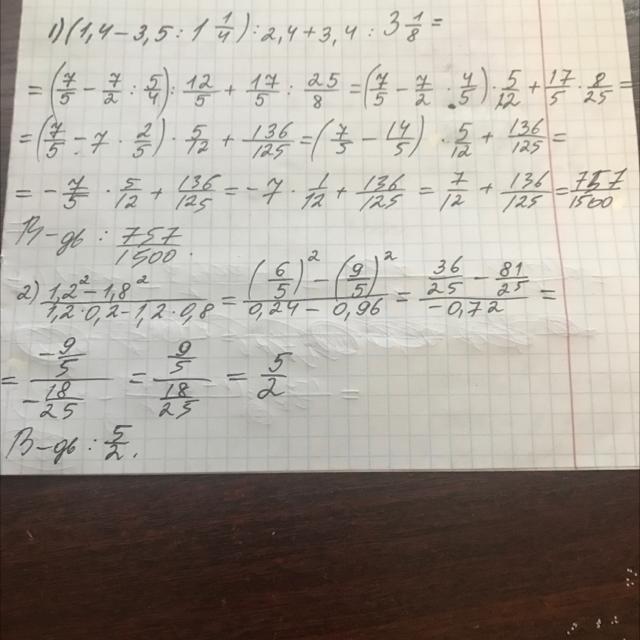 1) (1,4 − 3,5 : 1 1/4) : 2,4 + 3,4 : 3 1/8 =
= (7/5 − 7/2 : 5/4) : 12/5 + 17/5 : 25/8 = (7/5 − 7/2 · 4/5) · 5/12 + 17/5 · 8/25 =
= (7/5 − 7 · 2/5) · 5/12 + 136/125 = (7/5 − 14/5) · 5/12 + 136/125 =
= − 7/5 · 5/12 + 136/125 = − 7 · 1/12 + 136/125 = 7/12 + 136/125 = 757/1500
В-дь : 757/1500.
2) (1,2² − 1,8²)/(1,2 · 0,2 − 1,2 · 0,8) = ((6/5)² − (9/5)²)/(0,24 − 0,96) = (36/25 − 81/25)/(−0,72) =
= (−9/5)/(−18/25) = (9/5)/(18/25) = 5/2 =
В-дь : 5/2.